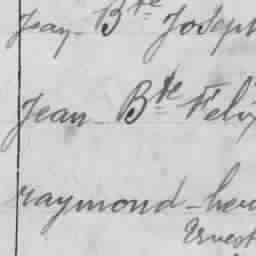 Jean Bte Joseph
Jean Bte Felix
raymond - 
Ernest